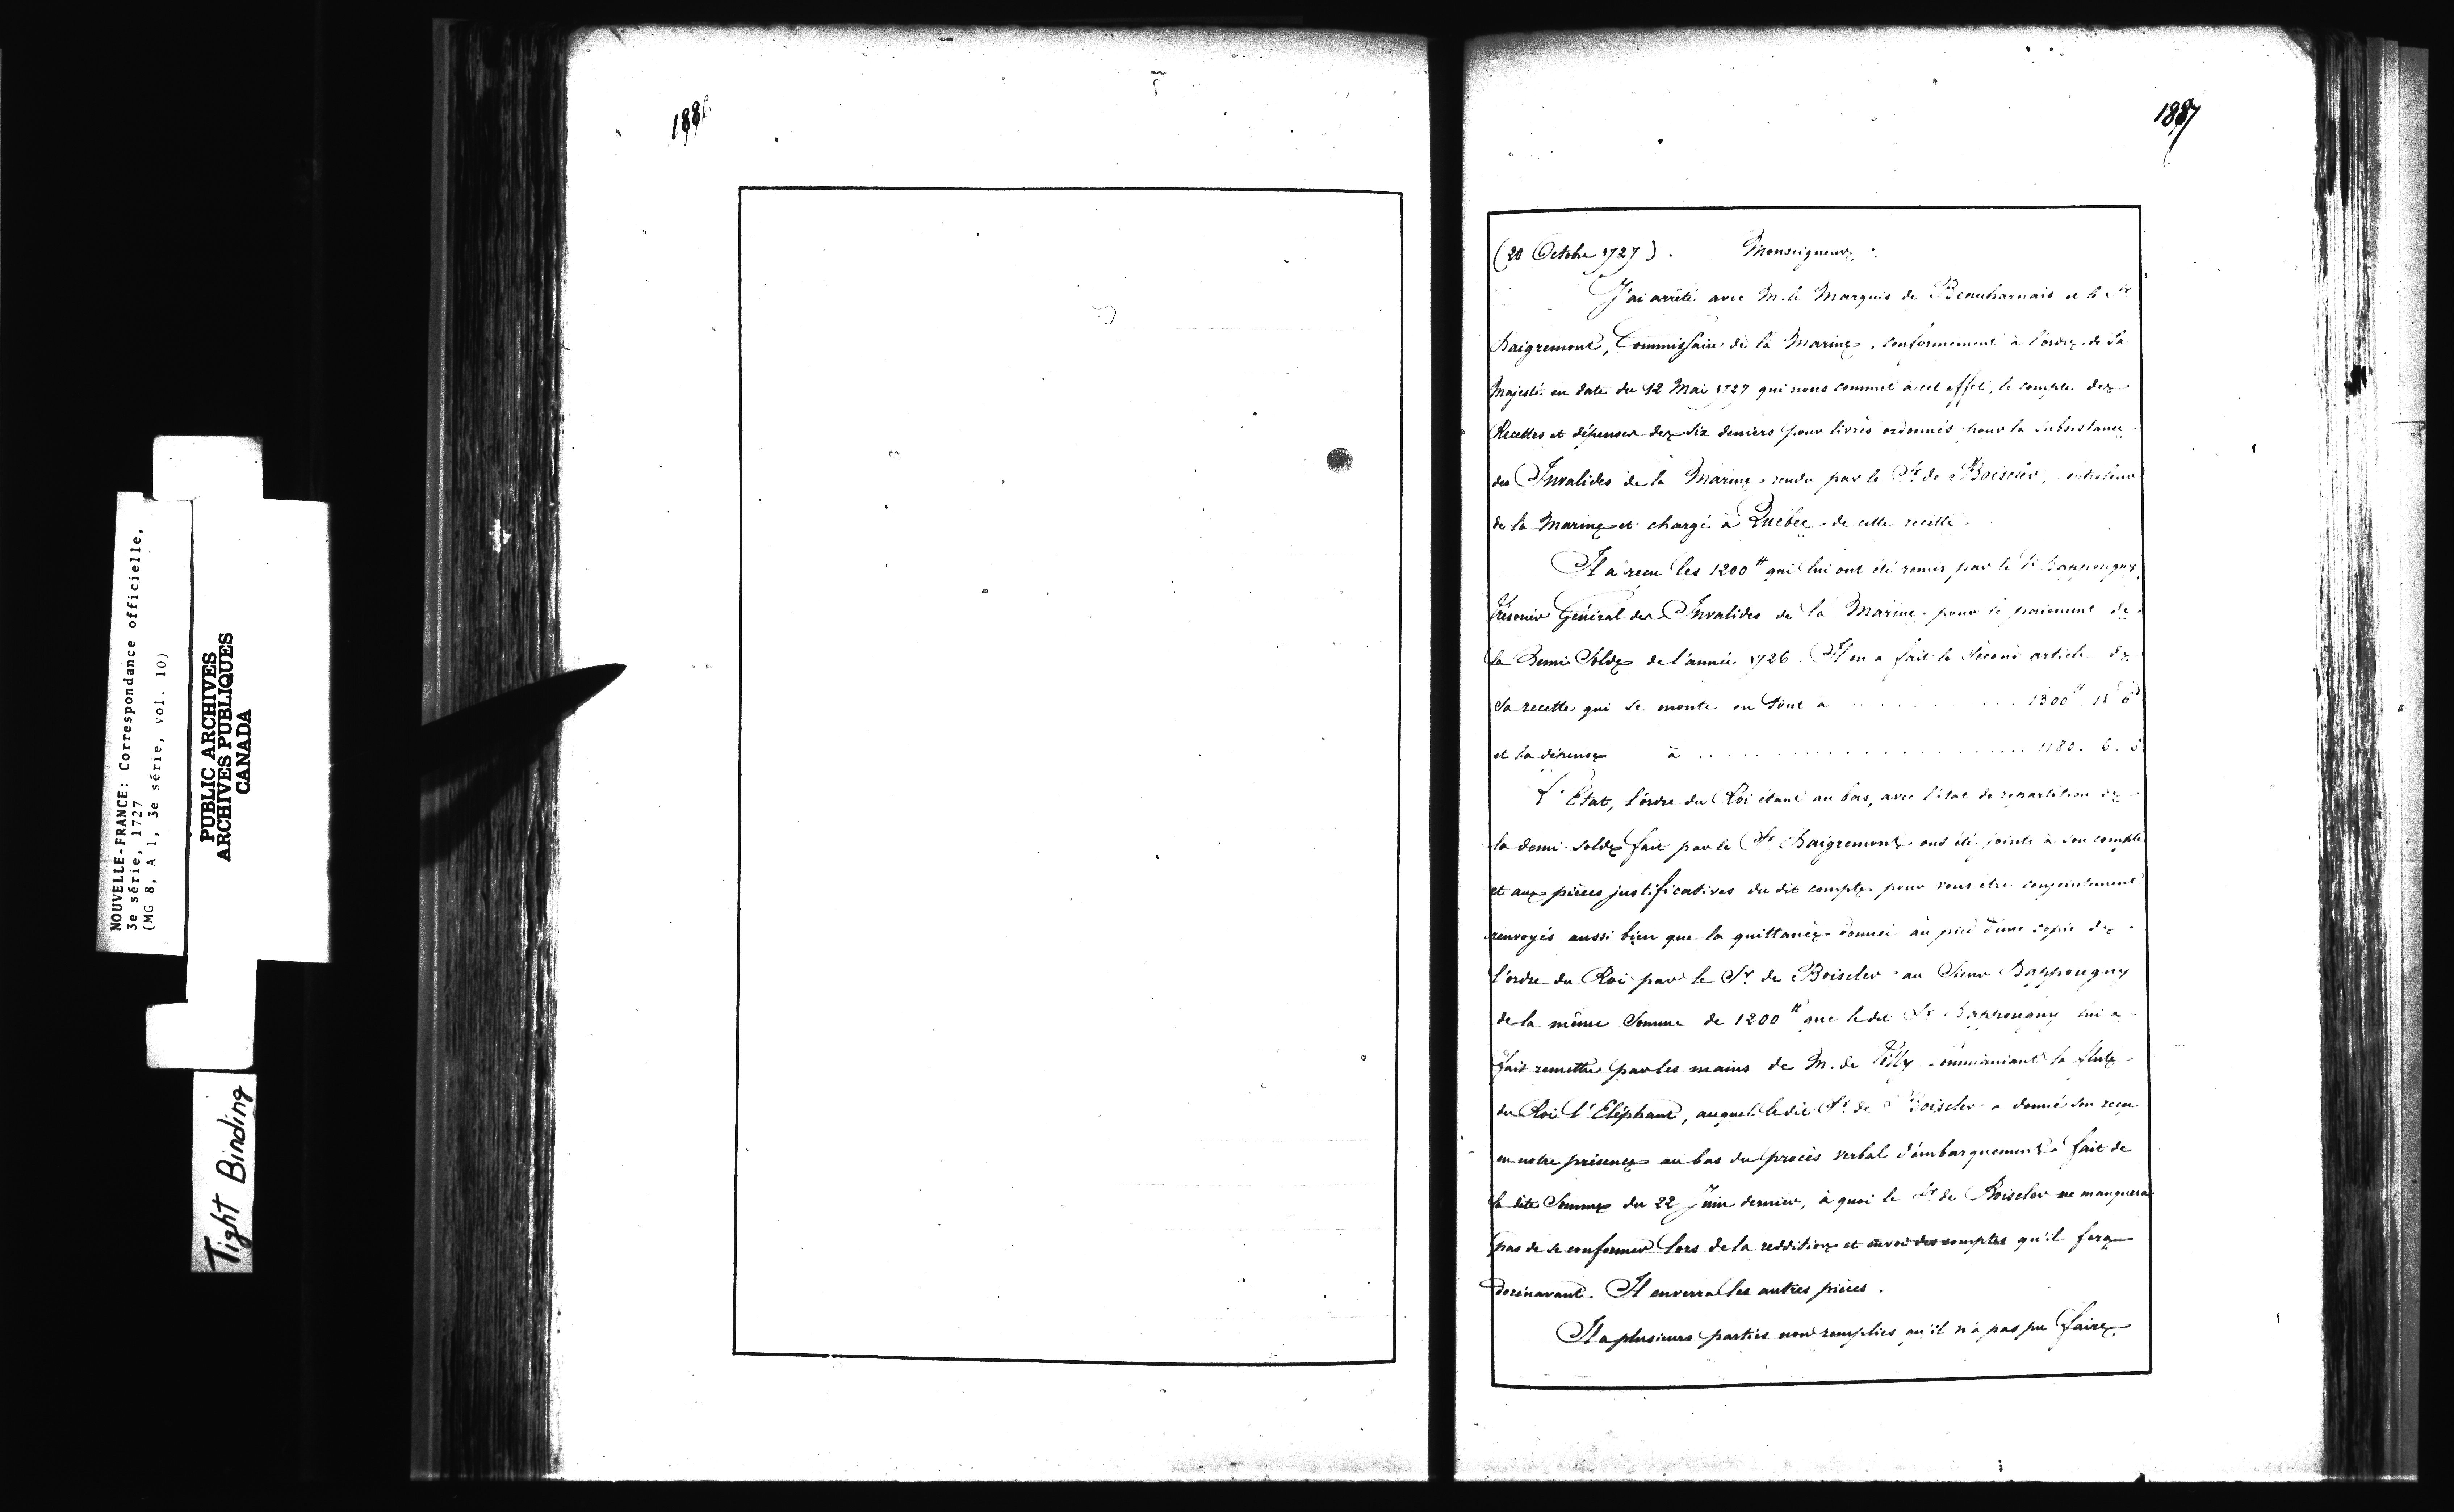 NOUVELLE-FRANCE: Correspondance officielle,
3e série, 1727
(MG 8, A 1, 3e série, vol. 10)
PUBLIC ARCHIVES
ARCHIVES PUBLIQUES
CANADA
Tight Binding
1886
1887
(20 Octobre 1727). Monseigneur,
J'ai arrêté avec M. le Marquis de Beauharnais et le Sr
Daigremont, Commissaire de la Marine, conformement à l'ordre de Sa
Majesté en date du 12 Mai 1727 qui nous commet à cet effet, le compte des
Recettes et dépenses des Six deniers pour livres ordonnés pour la subsistance
des Invalides de la Marine rendu par le Sr. de Boiscler,
de la Marine et chargé à Québec de cette recette.
Il a recu les 1200# qui lui ont été remis par le Sr
Trésorier Général des Invalides de la Marine pour le paiement de
la Demi Solde de l'année 1726. Il en a fait le Second article de
Sa recette qui se monte en tout à ............ 1300# 18 6d
et la dépense à .................... 1180. 6. 8
L'Etat, l'ordre du Roi étant au bas, avec l'état de repartition de
la demi-solde fait par le Sr Daigremont ont été joints à son compte
et aux pièces justificatives du dit compte pour vous etre conjointement
renvoyés aussi bien que la quittance donnée au pied d'une copie de
l'ordre du Roi par le Sr. de Boiscler au Sieur Bappougny
de la même Somme de 1200# que le dit Sr Bappougny lui a
fait remettre par les mains de M. de Tilly commandant la flute
du Roi l'Eléphant, auquel le dit Sr. de Boiscler a donné son recu
en notre présence au bas du procès verbal d'embarquement fait de
la dite Somme du 22 Juin dernier, à quoi le Sr de Boiscler ne manquera
pas de se conformer lors de la reddition et envoi des comptes qu'il fera
dorénavant. Il enverra les autres pièces.
Il a plusieurs parties non remplies qu'il n'a pas pu faire